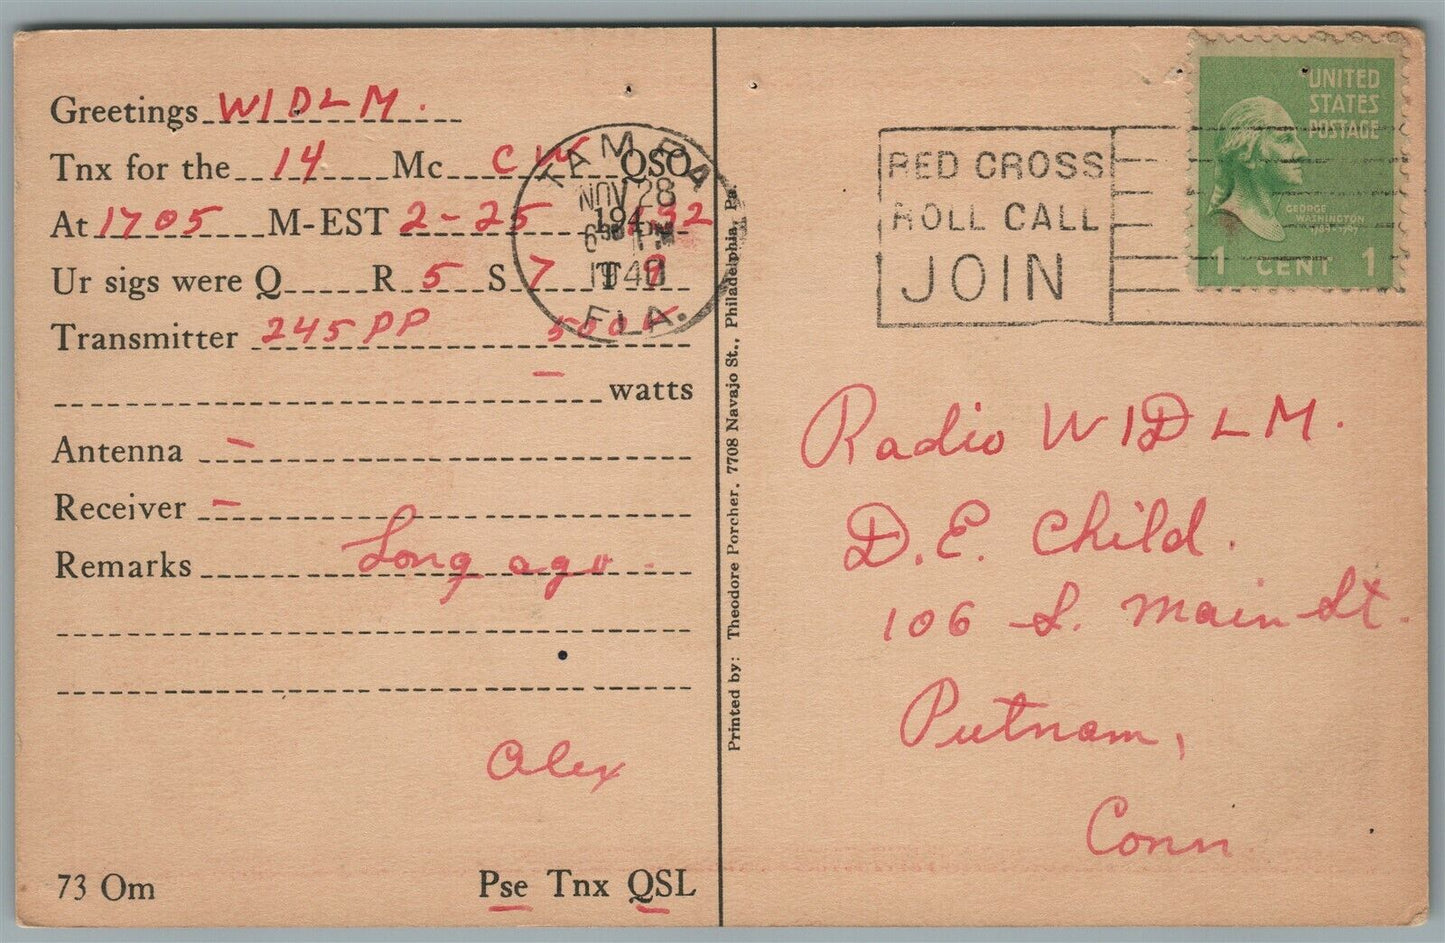 Greetings W1DLM.
Tnx for the 14 Mc CW QSO
At 1705 M-EST 2-25 194 32
Ur sigs were Q R 5 S 7 T 9
Transmitter 245 PP 500V
— watts
Antenna —
Receiver —
Remarks Long ago.
Alex
73 Om Pse Tnx QSL
TAMPA
NOV 28
6 PM
1940
FLA.
Printed by: Theodore Porcher. 7708 Navajo St., Philadelphia, Pa.
RED CROSS
ROLL CALL
JOIN
UNITED
STATES
POSTAGE
GEORGE
WASHINGTON
1789-1797
1 CENT 1
Radio W1DLM.
D.E. Child.
106 S. Main St.
Putnam,
Conn